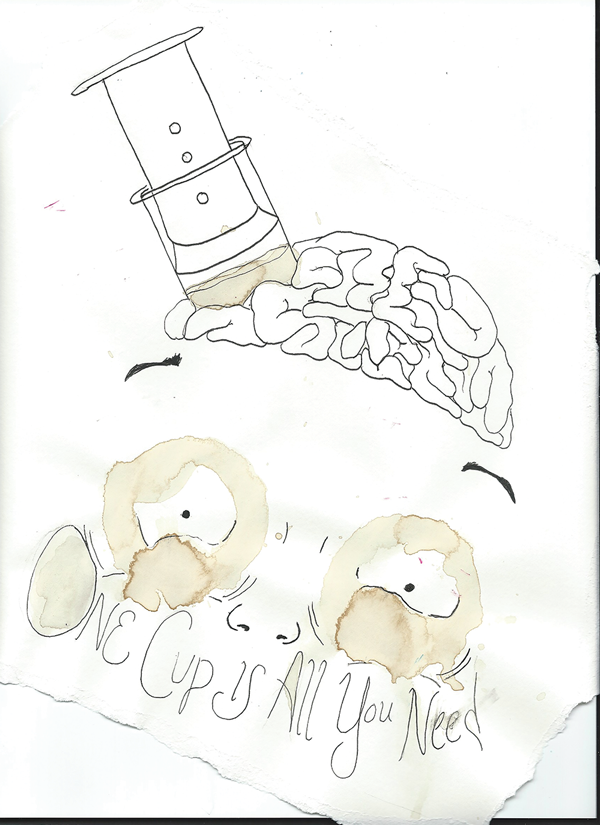 ONE Cup IS All You Need